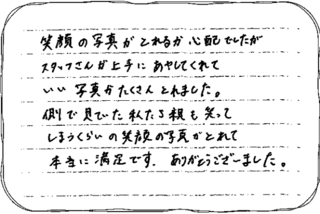 笑顔の写真がとれるか心配でしたが
スタッフさんが上手にあやしてくれて
いい写真がたくさんとれました。
側で見ていた私たち親も笑って
しまうくらいの笑顔の写真がとれて
本当に満足です。ありがとうございました。